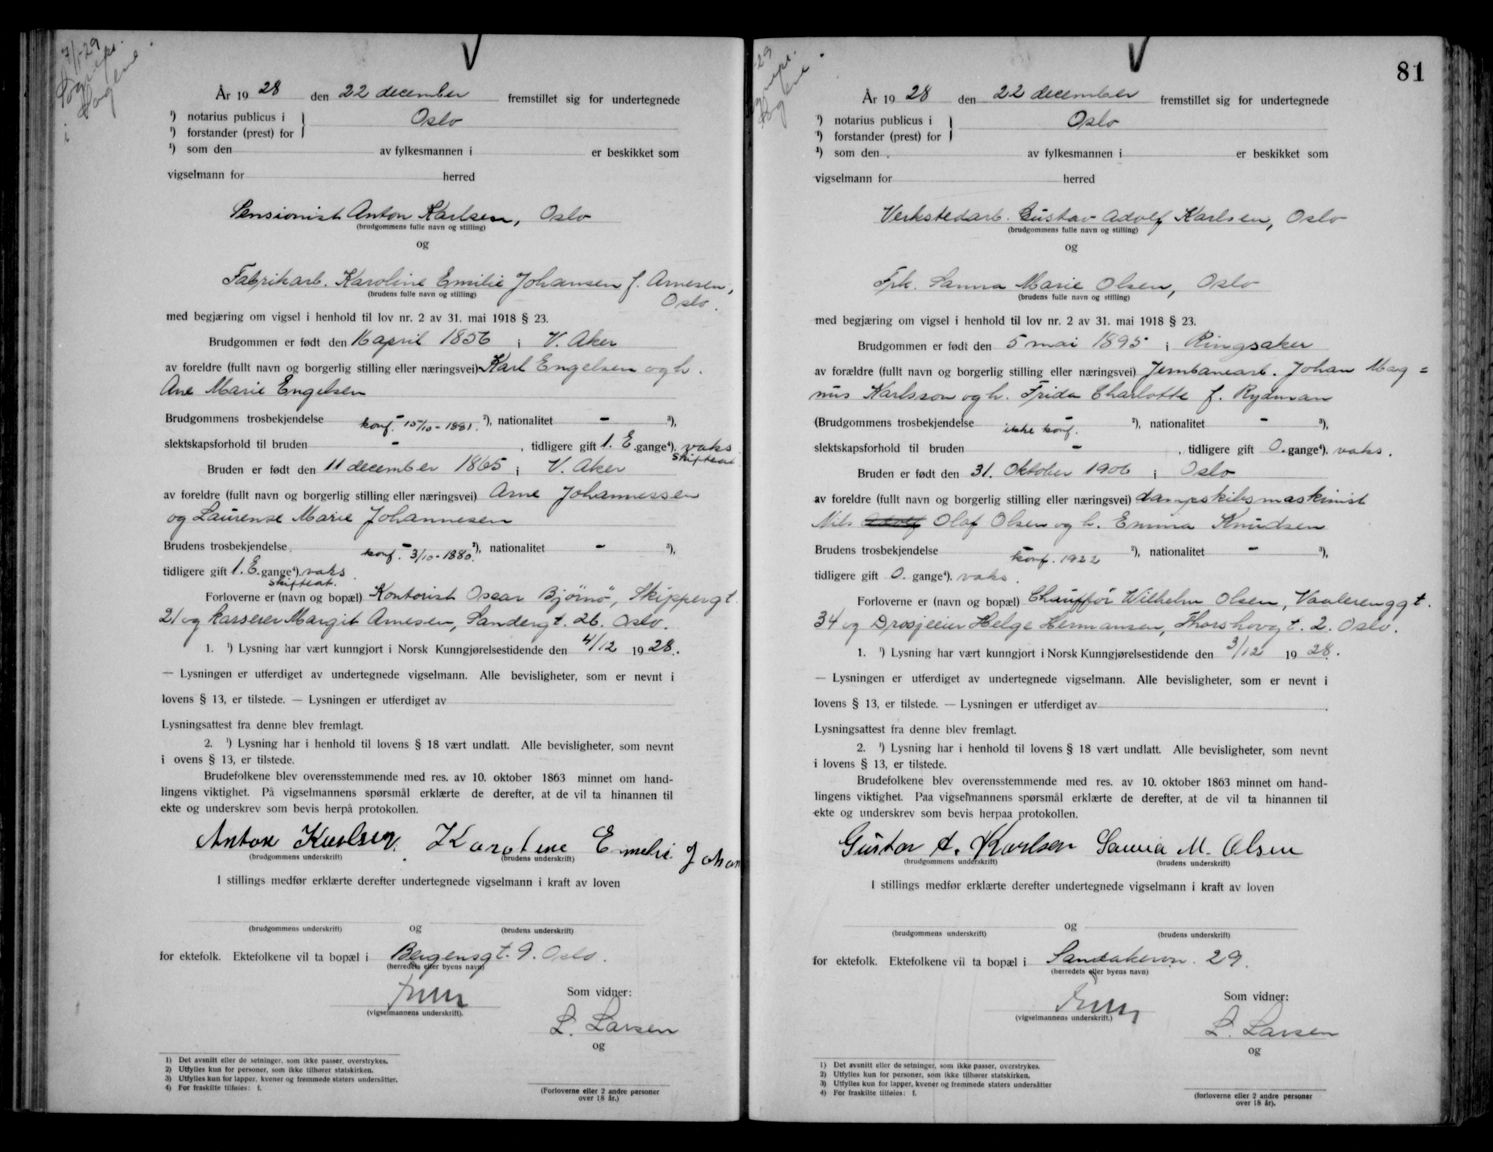 7/1-29
År 1928 den 22 december fremstillet sig for undertegnede
¹) notarius publicus i } Oslo
¹) forstander (prest) for
¹) som den av fylkesmannen i er beskikket som
vigselmann for herred
Pensionist Anton Karlsen, Oslo
(brudgommens fulle navn og stilling)
og
Fabrikarb. Karoline Emilie Johansen f. Arnesen,
(brudens fulle navn og stilling) Oslo.
med begjæring om vigsel i henhold til lov nr. 2 av 31. mai 1918 § 23.
Brudgommen er født den 16 april 1856 i V. Aker
av foreldre (fullt navn og borgerlig stilling eller næringsvei) Karl Engelsen og h.
Ane Marie Engelsen
Brudgommens trosbekjendelse konf. 15/10-1881. ²), nationalitet - ³),
slektskapsforhold til bruden - , tidligere gift 1. E. gange⁴). vaks
skifteat.
Bruden er født den 11 december 1865 i V. Aker
av foreldre (fullt navn og borgerlig stilling eller næringsvei) Arne Johannessen
og Laurense Marie Johannesen
Brudens trosbekjendelse konf. 3/10-1880. ²), nationalitet - ³),
tidligere gift 1. E. gange⁴). vaks
skifteat.
Forloverne er (navn og bopæl) Kontorist Oscar Bjørnø, Skippergt.
21 og kasserer Margit Arnesen, Sandergt. 26. Oslo.
1. ¹) Lysning har vært kunngjort i Norsk Kunngjørelsestidende den 4/12 1928.
— Lysningen er utferdiget av undertegnede vigselmann. Alle bevisligheter, som er nevnt i
lovens § 13, er tilstede. — Lysningen er utferdiget av
Lysningsattest fra denne blev fremlagt.
2. ¹) Lysning har i henhold til lovens § 18 vært undlatt. Alle bevisligheter, som nevnt
i ovens § 13, er tilstede.
Brudefolkene blev overensstemmende med res. av 10. oktober 1863 minnet om hand-
lingens viktighet. På vigselmannens spørsmål erklærte de derefter, at de vil ta hinannen til
ekte og underskrev som bevis herpå protokollen.
Anton Karlsen. Karoline Emelie Johan
(brudgommens underskrift) (brudens underskrift)
I stillings medfør erklærte derefter undertegnede vigselmann i kraft av loven
og
(brudgommens underskrift) (brudens underskrift)
for ektefolk. Ektefolkene vil ta bopæl i Bergensgt. 9. Oslo.
(herredets eller byens navn)
Som vidner:
(vigselmannens underskrift).
L. Larsen
og
1) Det avsnitt eller de setninger, som ikke passer, overstrykes.
2) Utfylles kun for personer, som ikke tilhører statskirken.
3) Utfylles kun for lapper, kvener og fremmede staters undersåtter.
4) For fraskilte tilføies: f.
(Forloverne eller 2 andre personer
over 18 år.)
81
-29
År 1928 den 22 december fremstillet sig for undertegnede
¹) notarius publicus i } Oslo
¹) forstander (prest) for
¹) som den av fylkesmannen i er beskikket som
vigselmann for herred
Verkstedarb. Gustav Adolf Karlsen, Oslo
(brudgommens fulle navn og stilling)
og
Frk. Sanna Marie Olsen, Oslo
(brudens fulle navn og stilling)
med begjæring om vigsel i henhold til lov nr. 2 av 31. mai 1918 § 23.
Brudgommen er født den 5 mai 1895 i Ringsaker
av forældre (fullt navn og borgerlig stilling eller næringsvei) Jernbanearb. Johan Mag=
nus Karlsson og h. Frida Charlotte f. Rydman
(Brudgommens trosbekjendelse ikke konf. ²), nationalitet - ³),
slektskapsforhold til bruden - , tidligere gift 0. gange⁴). vaks.
Bruden er født den 31. Oktober 1906 i Oslo
av foreldre (fullt navn og borgerlig stilling eller næringsvei) dampskibsmaskinist
Nils Adolf Olaf Olsen og h. Emma Knudsen
Brudens trosbekjendelse konf. 1922 ²), nationalitet - ³),
tidligere gift 0. gange⁴). vaks.
Forloverne er (navn og bopæl) Chauffør Wilhelm Olsen, Vaalerenggt.
34 og Drosjeeier Helge Hermansen, Thorshovgt. 2. Oslo.
1. ¹) Lysning har vært kunngjort i Norsk Kunngjørelsestidende den 3/12 1928.
— Lysningen er utferdiget av undertegnede vigselmann. Alle bevisligheter, som er nevnt i
lovens § 13, er tilstede. — Lysningen er utferdiget av
Lysningsattest fra denne blev fremlagt.
2. ¹) Lysning har i henhold til lovens § 18 vært undlatt. Alle bevisligheter, som nevnt
i lovens § 13, er tilstede.
Brudefolkene blev overensstemmende med res. av 10. oktober 1863 minnet om hand-
lingens viktighet. Paa vigselmannens spørsmål erklærte de derefter, at de vil ta hinannen til
ekte og underskrev som bevis herpaa protokollen.
Gustav A. Karlsen Sanna M. Olsen
(brudgommens underskrift) (brudens underskrift)
I stillings medfør erklærte derefter undertegnede vigselmann i kraft av loven
og
(brudgommens underskrift) (brudens underskrift)
for ektefolk. Ektefolkene vil ta bopæl i Sandakervn. 29.
(herredets eller byens navn)
Som vidner:
(vigselmannens underskrift.)
L. Larsen
og
1) Det avsnitt eller de setninger, som ikke passer, overstrykes.
2) Utfylles kun for personer, som ikke tilhører statskirken.
3) Utfylles kun for lapper, kvener og fremmede staters undersåtter
4) For fraskilte tilføies: f.
(forloverne eller 2 andre personer
over 18 år).